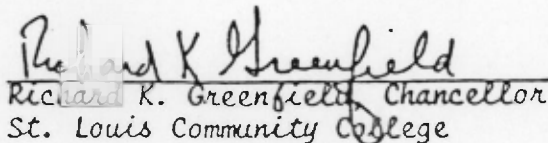 Richard K Greenfield
Richard K. Greenfield, Chancellor
St. Louis Community College